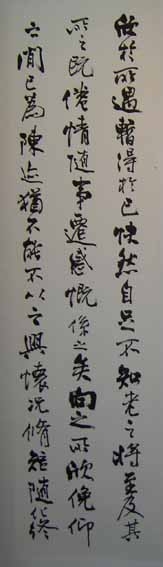 欣於所遇暫得於己快然自足不知老之將至及其
所之既倦情隨事遷感慨係之矣向之所欣俛仰
之間已為陳迹猶不能不以之興懷況脩短隨化終